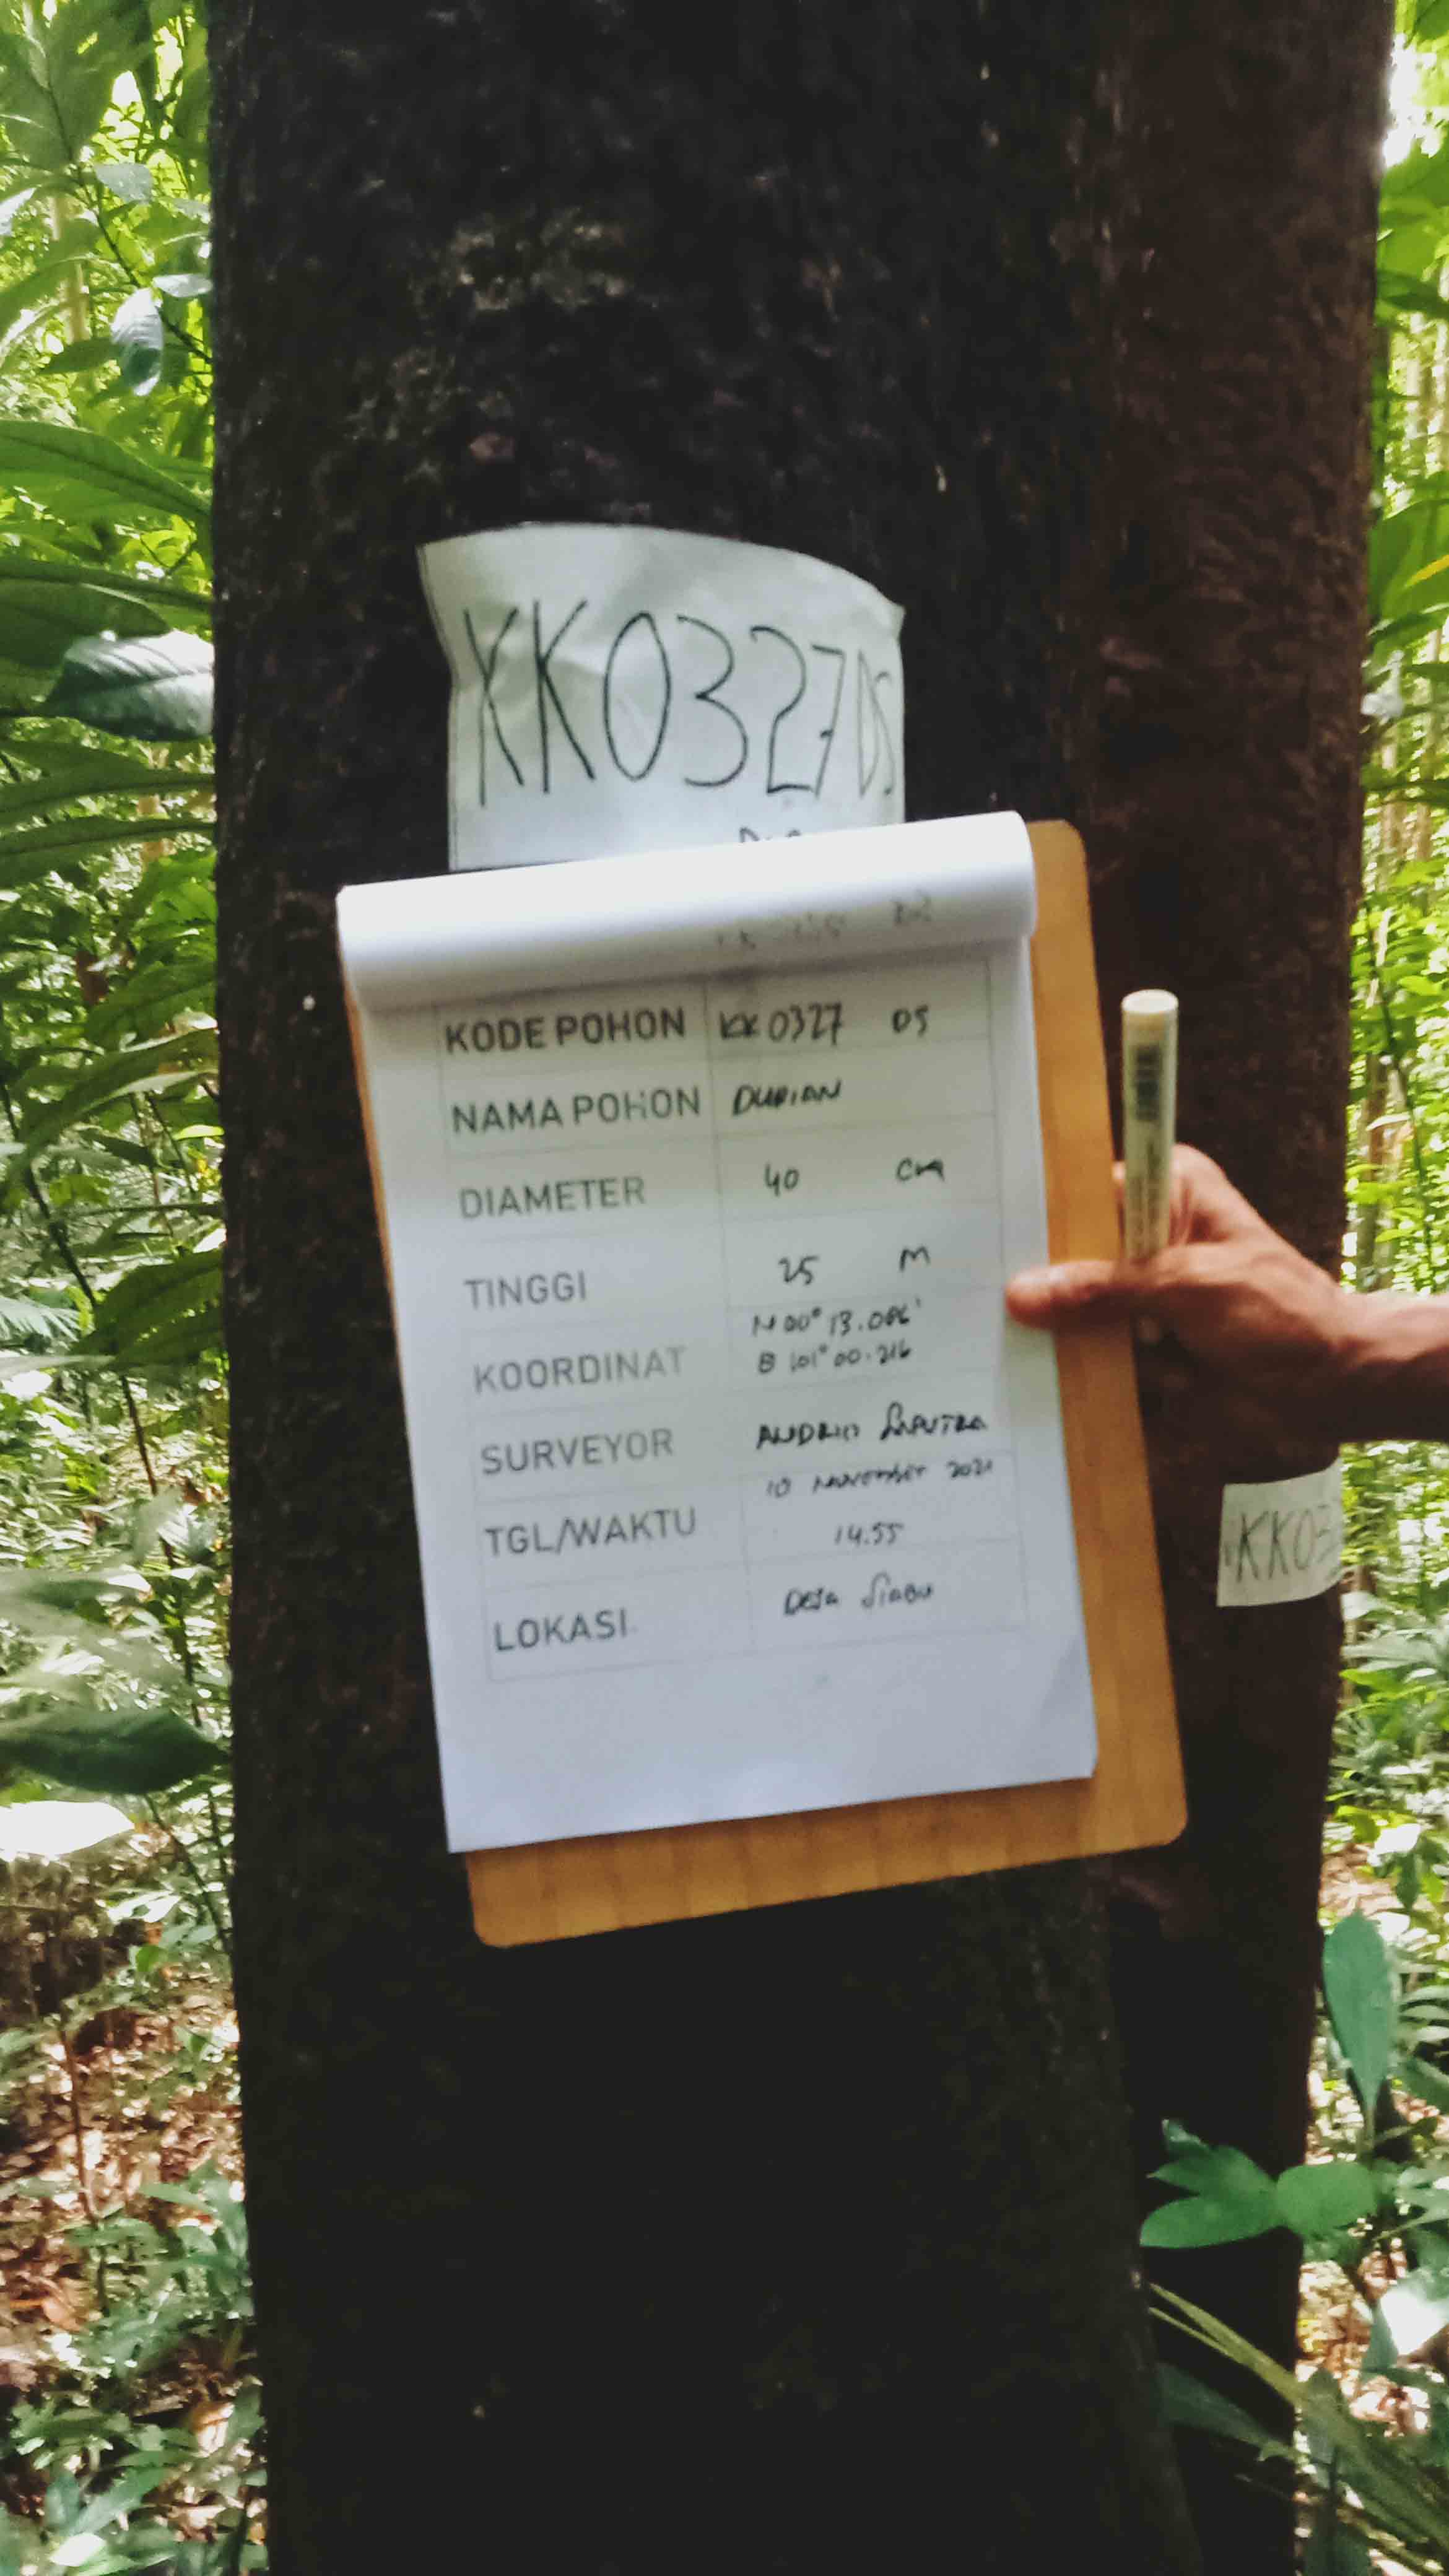 KK0327 DS
KODE POHON KK0327 DS
NAMA POHON DURIAN
DIAMETER 40 cm
TINGGI 25 M
KOORDINAT N 00° 13.086'
E 101° 00.216
SURVEYOR ANDRIO SAPUTRA
TGL/WAKTU 10 November 2021
14.55
LOKASI Desa Siabu
KK03